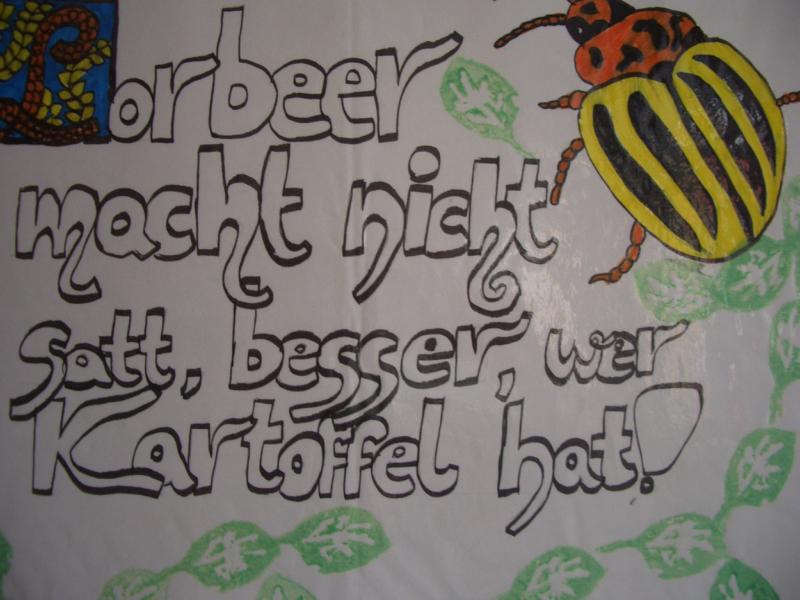 Lorbeer
macht nicht
satt, besser, wer
Kartoffel hat!